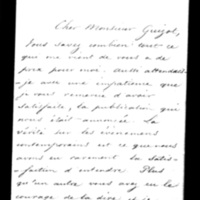 Cher Monsieur Guizot,
Vous savez combien tout ce
qui me vient de vous a de
prix pour moi. Aussi attendais-
je avec une impatience que
je vous remercie d'avoir
satisfaite, la publication qui
nous était annoncée. La
vérité sur les événemens
contemporains est ce que nous
avons eu rarement la satis-
faction d'entendre. Plus
qu'un autre vous avez eu le
courage de la dire et je